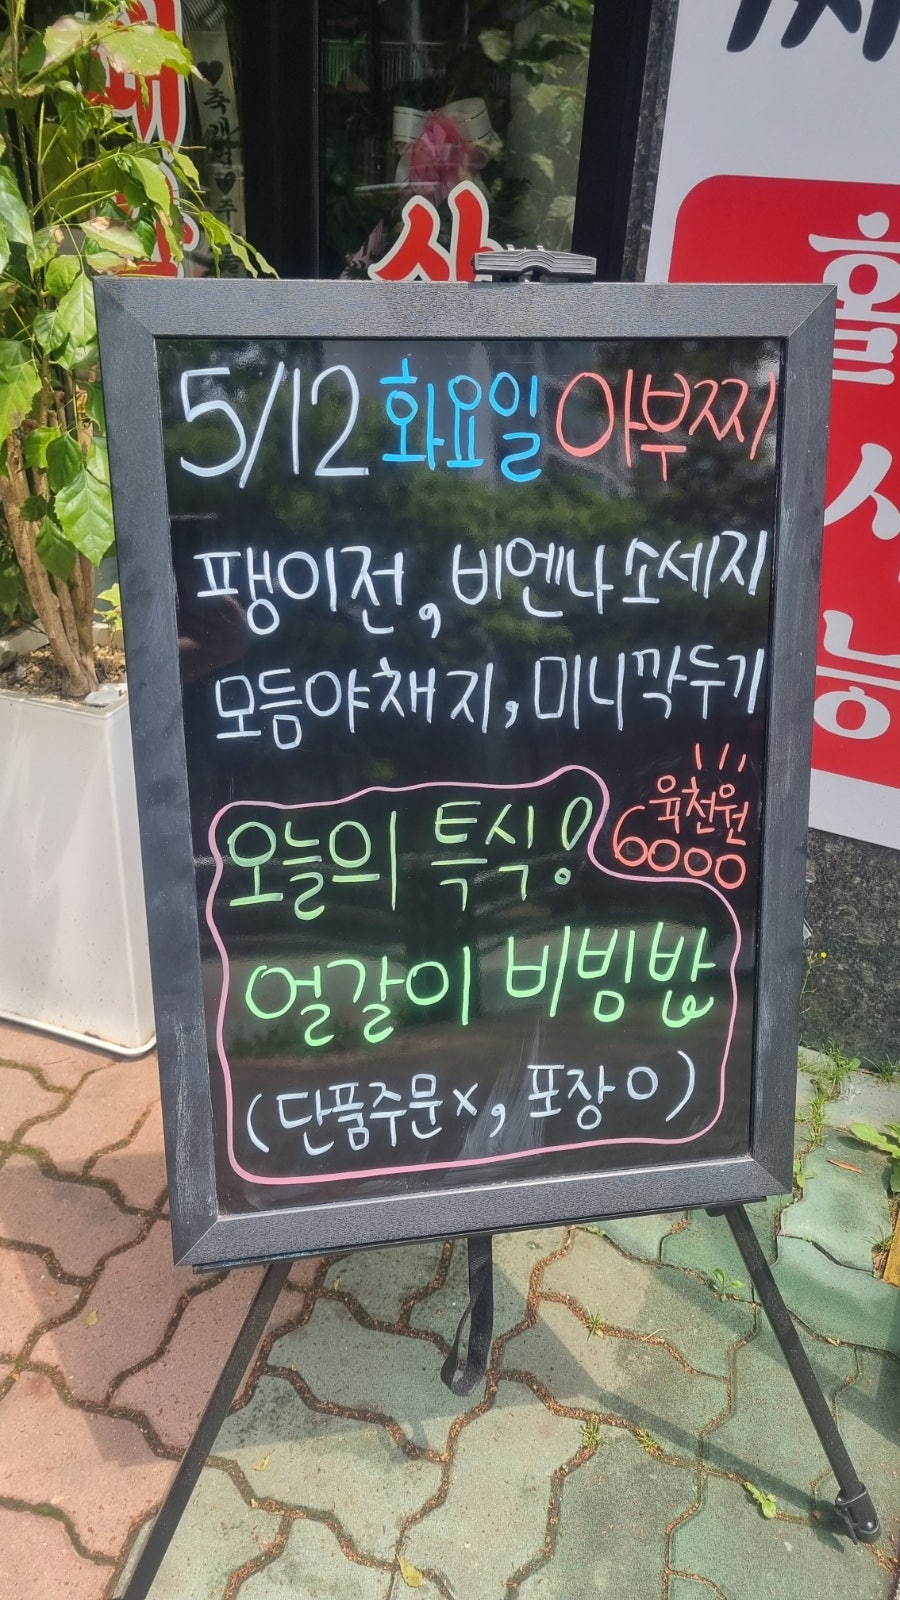 5/12 화요일 아부찌
팽이전, 비엔나소세지
모듬야채지, 미니깍두기
육천원
6000
오늘의 특식!
얼갈이 비빔밥
(단품주문x, 포장 O)
홀
식